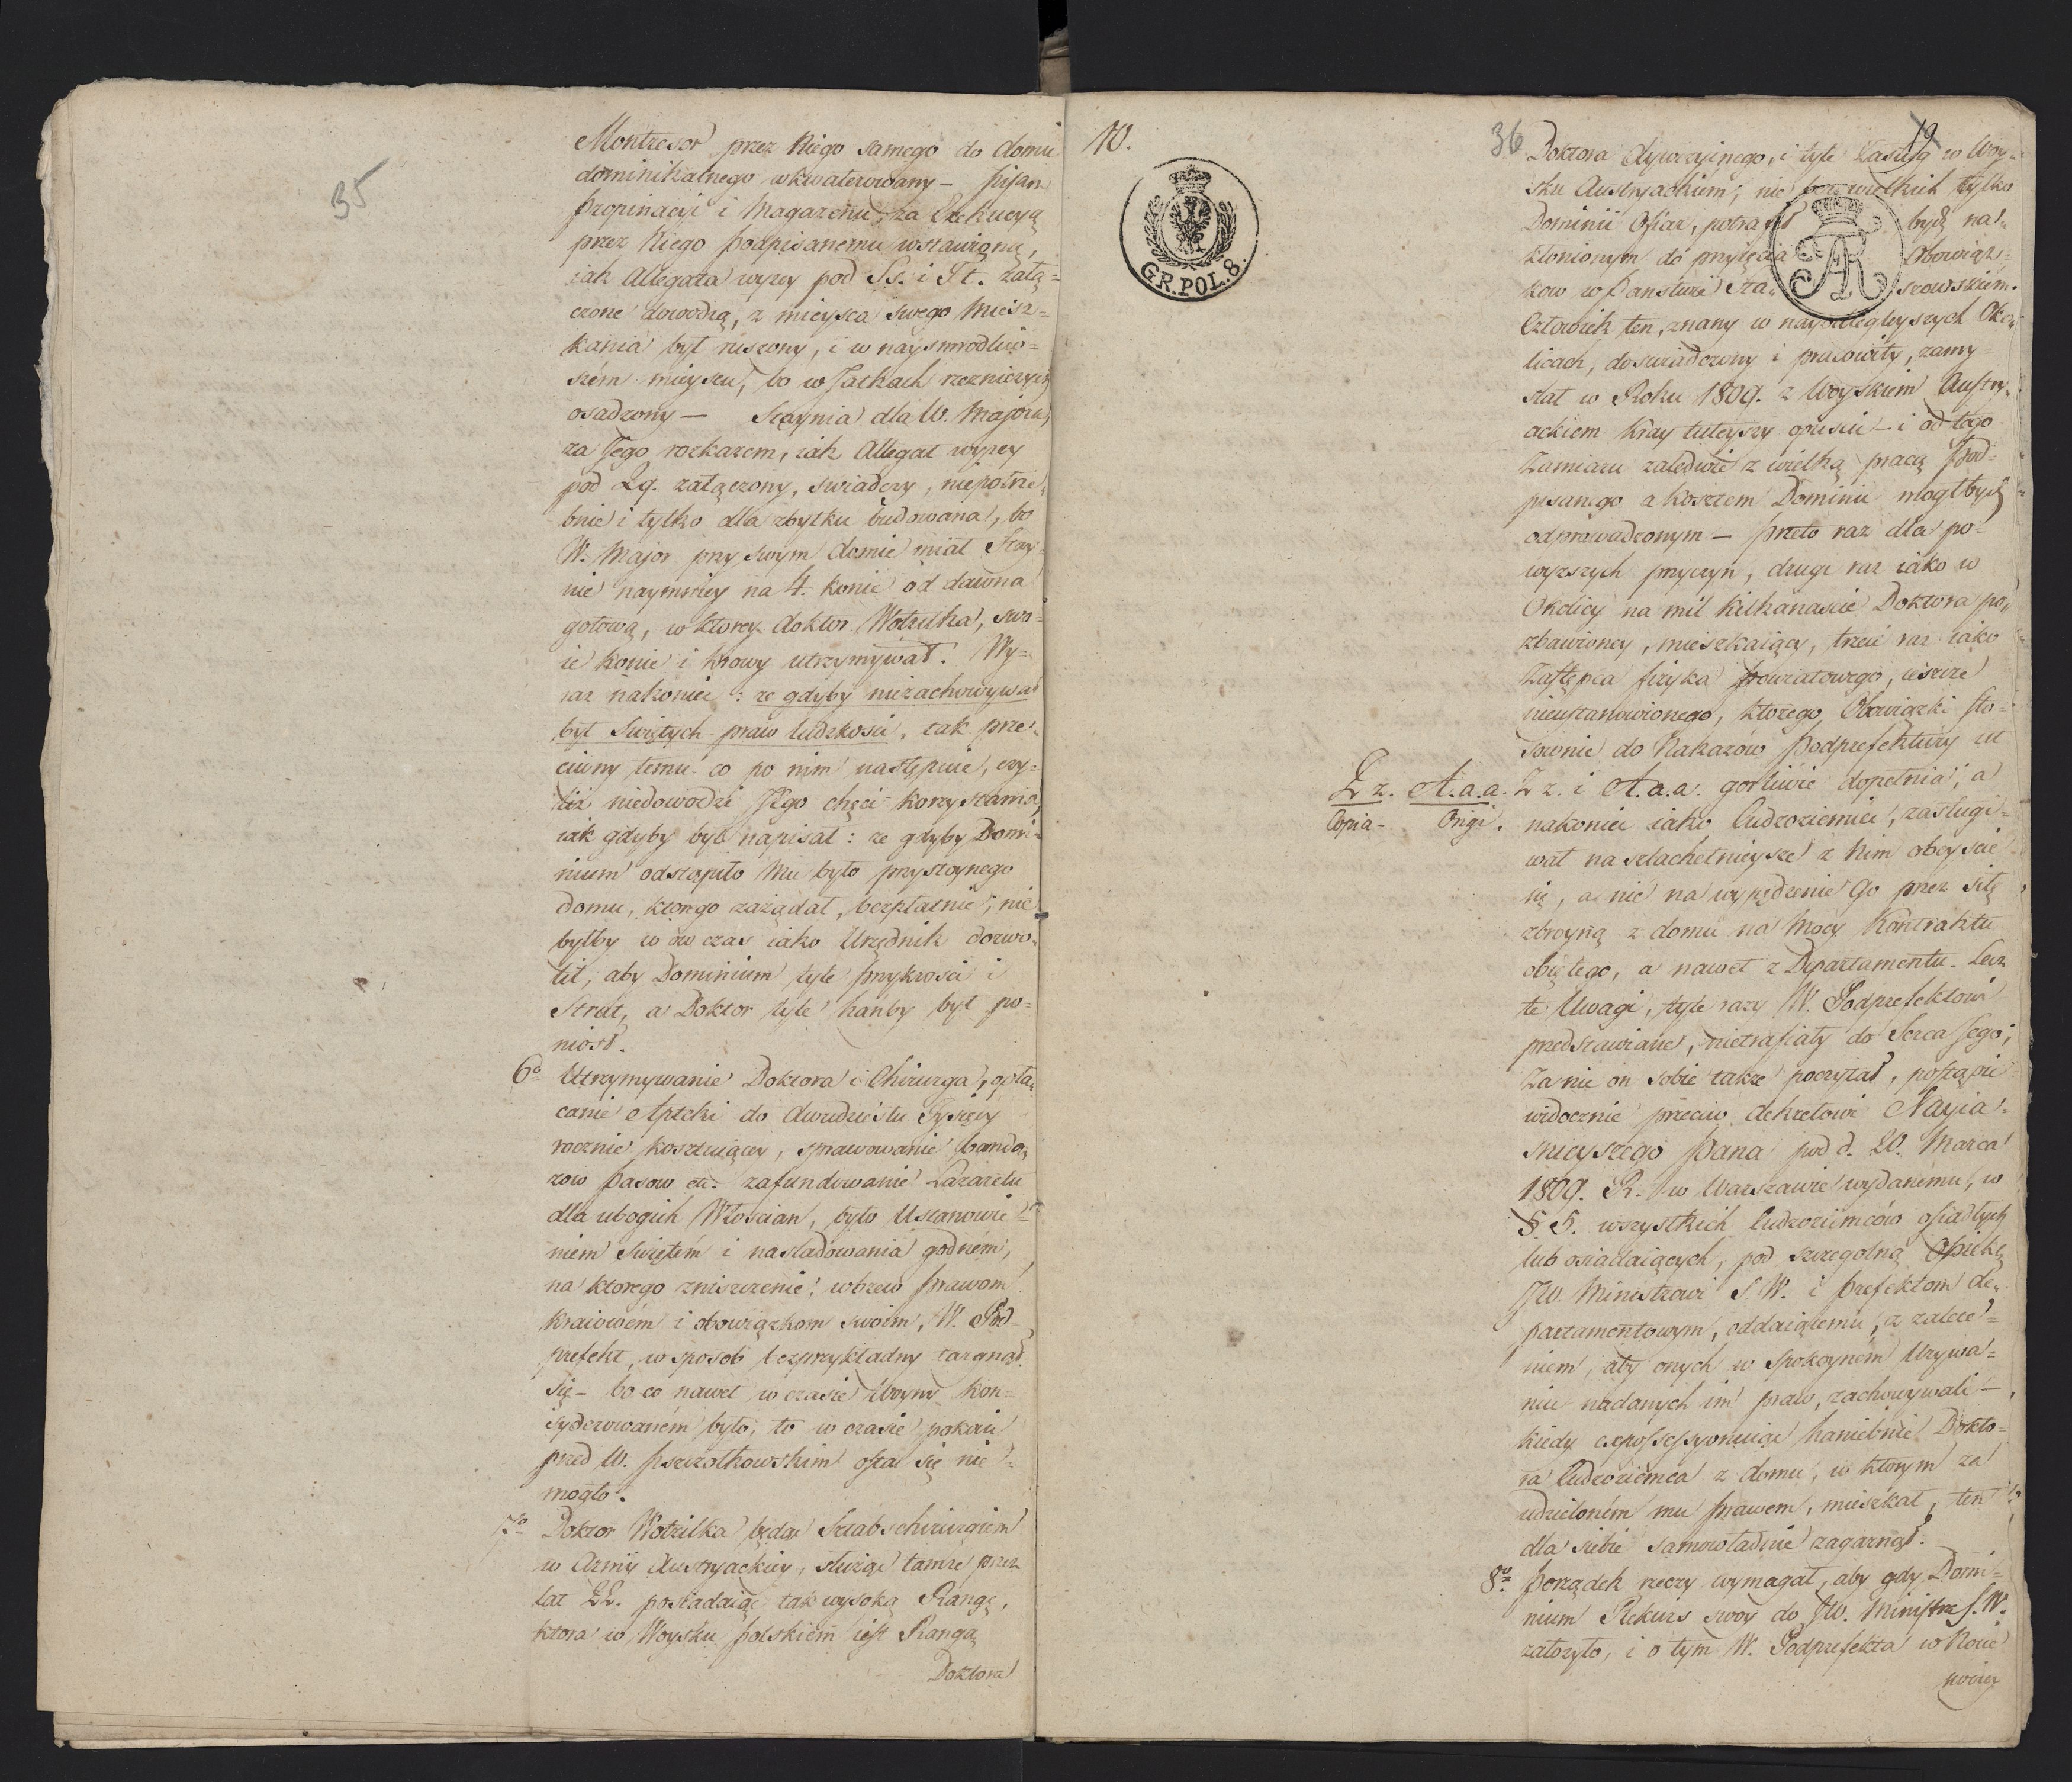 35
Montresor przez Niego samego do domu
dominikalnego wkwaterowany – pisarz
propinacyi i Magazenu, za Exekucyą
przez Niego podpisanemu wstawioną,
iak Allegata wyzey pod Ss. i Tt. załą=
czone dowodzą, z mieysca swego miesz=
kania był ruszony, i w naysmrodliw=
szém mieyscu, bo w Jatkach rzezniczych
osadzony – Staynia dla W. Majora,
za Jego rozkazem, iak Allegat wyzey
pod Qq. załączony, swiadczy, niepotrze=
bnie i tylko dla zbytku budowana, bo
W. Major przy swym domie miał Stay=
nie naymniey na 4. konie od dawna
gotową, w ktorey doktor Wotrilka, swo=
ie konie i krowy utrzymywał. Wy=
raz nakoniec : ze gdyby niezachowywał
był Swiętych praw ludzkosci, tak prze=
ciwny temu co po nim następuie, czy=
liz niedowodzi Jego chęci korzystania,
iak gdyby był napisał : ze gdyby Domi=
nium odstąpiło Mu było przystoynego
domu, ktorego zażądał, bezpłatnie, nie
byłby w ow czas iako Urzędnik dozwo=
lił, aby Dominium tyle przykrosci i
Strat, a Doktor tyle hańby był po=
niosł.
6o Utrzymywanie Doktora i Chirurga, opła=
canie Apteki do dwudziestu Tysięcy
rocznie kosztuiącey, sprawowanie banda=
zow pasow etc. zafundowanie Lazaretu
dla ubogich Włoscian, było Ustanowie=
niem swiętém i nasladowania godném,
na ktorego zniszczenie, wbrew prawom
kraiowém i obowiązkom swoim, W. Pod=
prefekt, w sposob bezprzykładny targnął
się – bo co nawet w czasie woyny kon=
syderowaném było, to w czasie pokoiu
przed W. Pszczołkowskim ostać się nie=
mogło.
7o Doktor Wotrilka będąc Sztabschirurgiem
w Armii Austryackiey, służąc tamze przez
lat 22. posiadaiąc tak wysoką Rangę,
ktora w Woysku polskiem iest Rangą
Doktora
10.
GR.POL.8.
36
19
Doktora dywizyinego, i tyle Zasług w Woy=
sku Austryackiem; nie bez wielkich tylko
Dominii Ofiar, potrafił bydź na=
kłonionym do przyięcia Obowiąz=
kow w Panstwie szowskiém.
Człowiek ten, znany w nayodlegleyszych Oko=
licach, doswiadczony i pracowity, zamy=
slał w Roku 1809. z Woyskiem Austry=
ackiem kray tuteyszy opuscić – i od tego
Zamiaru zaledwie z wielką pracą Pod=
pisanego a kosztem Dominii mogł bydź
odprowadzonym – przeto raz dla po=
wyzszych przyczyn, drugi raz iako w
Okolicy na mil kilkanascie Doktora po=
zbawioney, mieszkaiący, trzeci raz iako
Zastępca fizyka powiatowego, ieszcze
nieustanowionego, ktorego Obowiązki sto=
sownie do Nakazów Podprefektury ut
Zz. A.a.a. Zz. i A.a.a. gorliwie dopełniał, a
Copia – Orygi. nakoniec iako Cudzoziemiec, zasługi=
wał na szlachetnieysze z Nim obeyscie
się, a nie na wypędzenie Go przez siłę
zbroyną z domu na Mocy Kontraktu
obiętego, a nawet z Departamentu. Lecz
te Uwagi, tyle razy W. Podprefektowi
przedstawiane, nietrafiały do Serca Jego;
Za nic on sobie takze poczytał, postąpic
widocznie przeciw dekretowi Nayia=
snieyszego Pana pod d. 20. Marca
1809. R. w Warszawie wydanému, w
§. 5. wszystkich Cudzoziemców osiadłych
lub osiadaiących, pod szczegolną Opiekę
JW. Ministrowi S. W. i Prefektom de=
partamentowym, oddaiącemu, z zalece=
niem, aby onych w spokoyném Używa=
niu nadanych im praw, zachowywali –
kiedy expossessyonuiąc haniebnie Dokto=
ra Cudzoziemca z domu, w ktorym za
udzieloném mu prawem, mieszkał, ten
dla siebie samowładnie zagarnął.
8o Porządek rzeczy wymagał, aby gdy Domi=
nium Rekurs swoy do JW. Ministra S. W.
załozyło, i o tym W. Podprefekta w Nocie